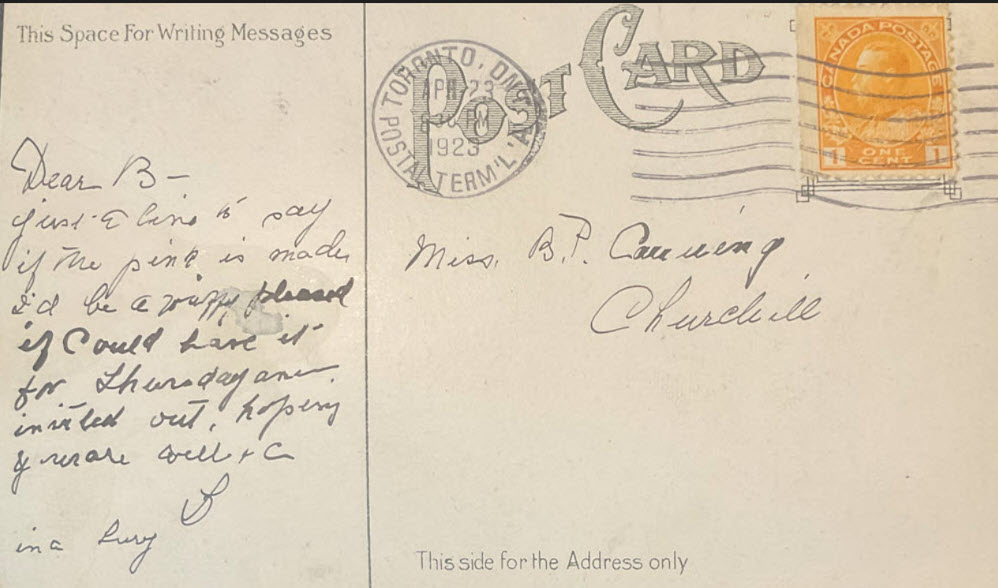 This Space For Writing Messages
POST CARD
TORONTO, ONT.
APR 23
8 30 PM
1923
POSTAL TERM'L "A"
CANADA POSTAGE
1 ONE CENT 1
Dear B—
just a line to say
if the pink is made
I'd be a pleased
if Could have it
for Thursday
invited out, hoping
you are well + C
in a hury
Miss. B. P.
Churchill
This side for the Address only